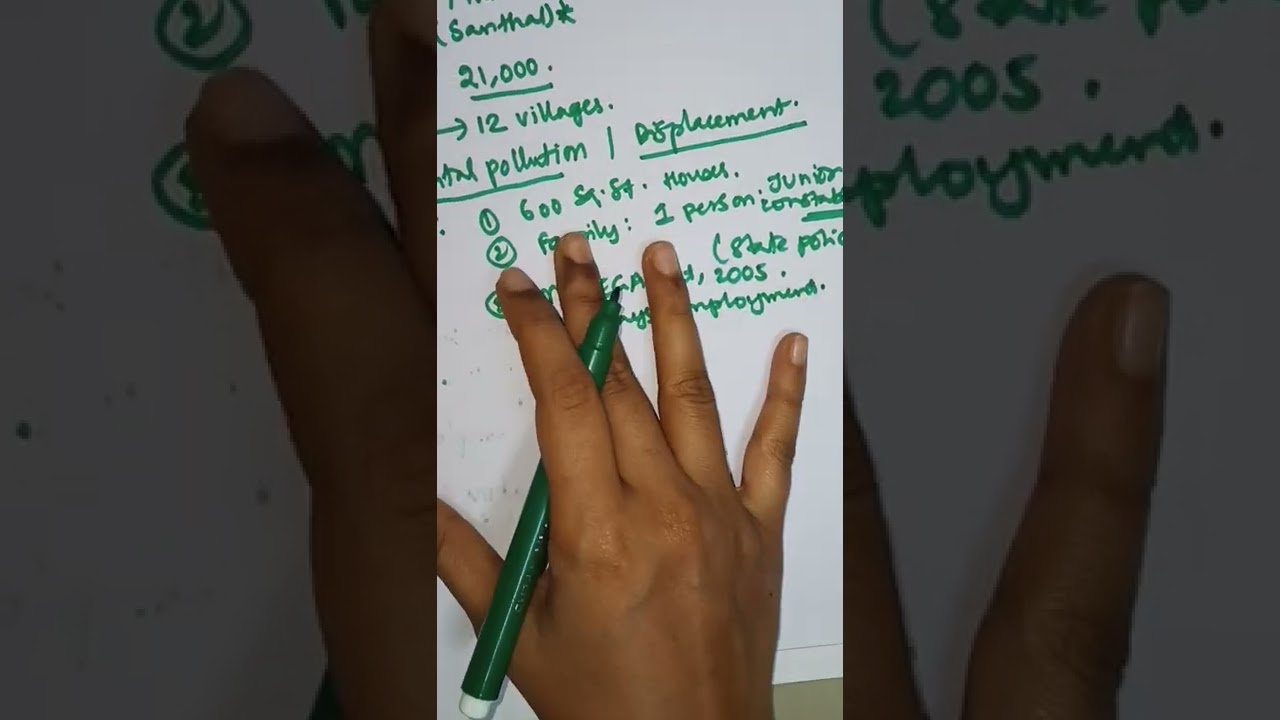 (Santhal)*
21,000.
→ 12 villages.
ntal pollution | Displacement.
① 600 sq. ft. Houses.
② Family: 1 person: Junior constab
(State polic
2005.
employment.